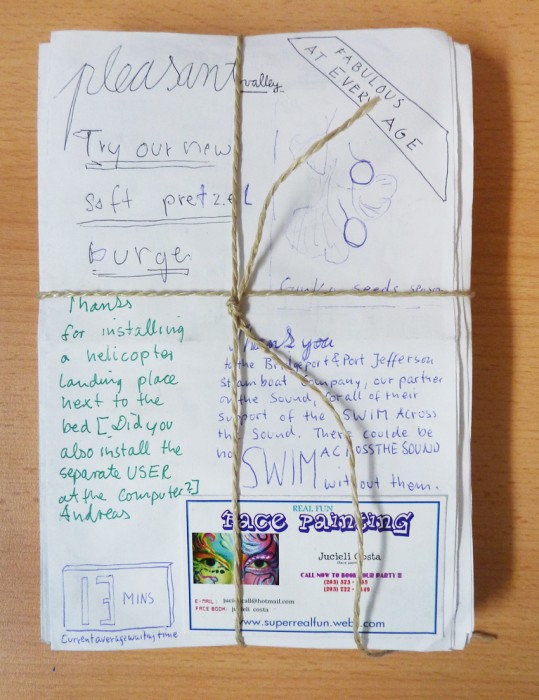 pleasant
valley
FABULOUS
AT EVERY AGE
Try our new
soft pretzel
burge
Thanks
for installing
a helicopter
landing place
next to the
bed [Did you
also install the
separate USER
at the computer?]
Andreas
you
to the Bridgeport & Port Jefferson
Steamboat Company, our partner
on the Sound, for all of their
support of the SWIM Across
the Sound. There could be
no SWIM ACROSS THE SOUND
without them.
REAL FUN
Face Painting
Jucieli Costa
CALL NOW TO BOOK YOUR PARTY !!
(203) 323 -
(203) 822 -
E-MAIL :
FACE BOOK: jucieli costa
www.superrealfun.webs.com
13 MINS
Current average waiting time